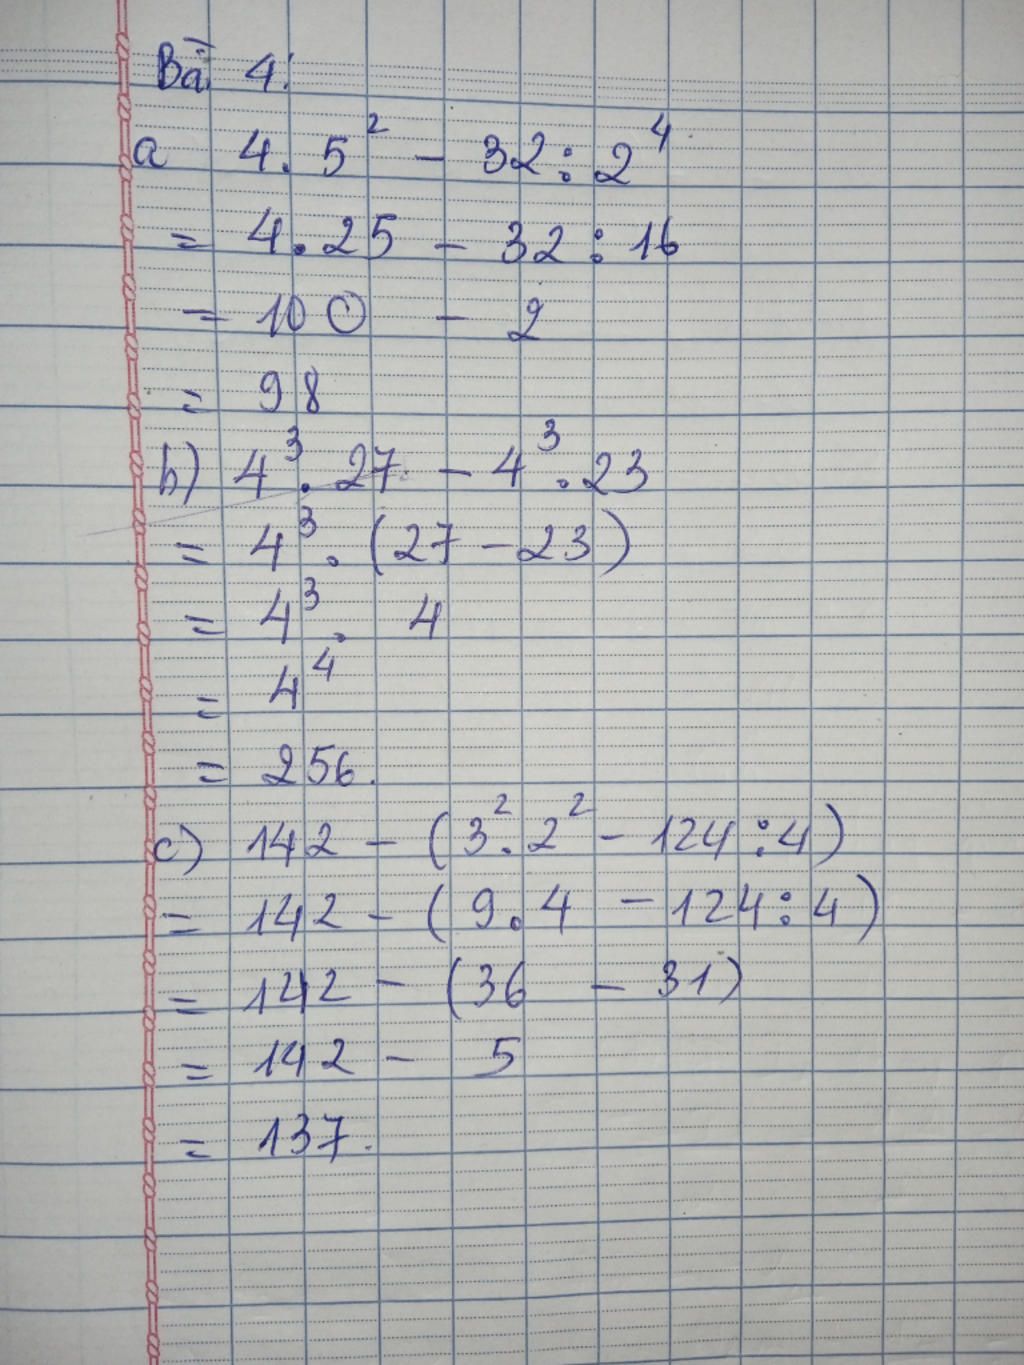 Bài 4:
a 4. 5² - 32 : 2⁴
= 4.25 - 32 : 16
= 100 - 2
= 98
b) 4³. 27 - 4³. 23
= 4³. (27 - 23)
= 4³. 4
= 4⁴
= 256.
c) 142 - (3². 2² - 124 : 4)
= 142 - (9.4 - 124 : 4)
= 142 - (36 - 31)
= 142 - 5
= 137.